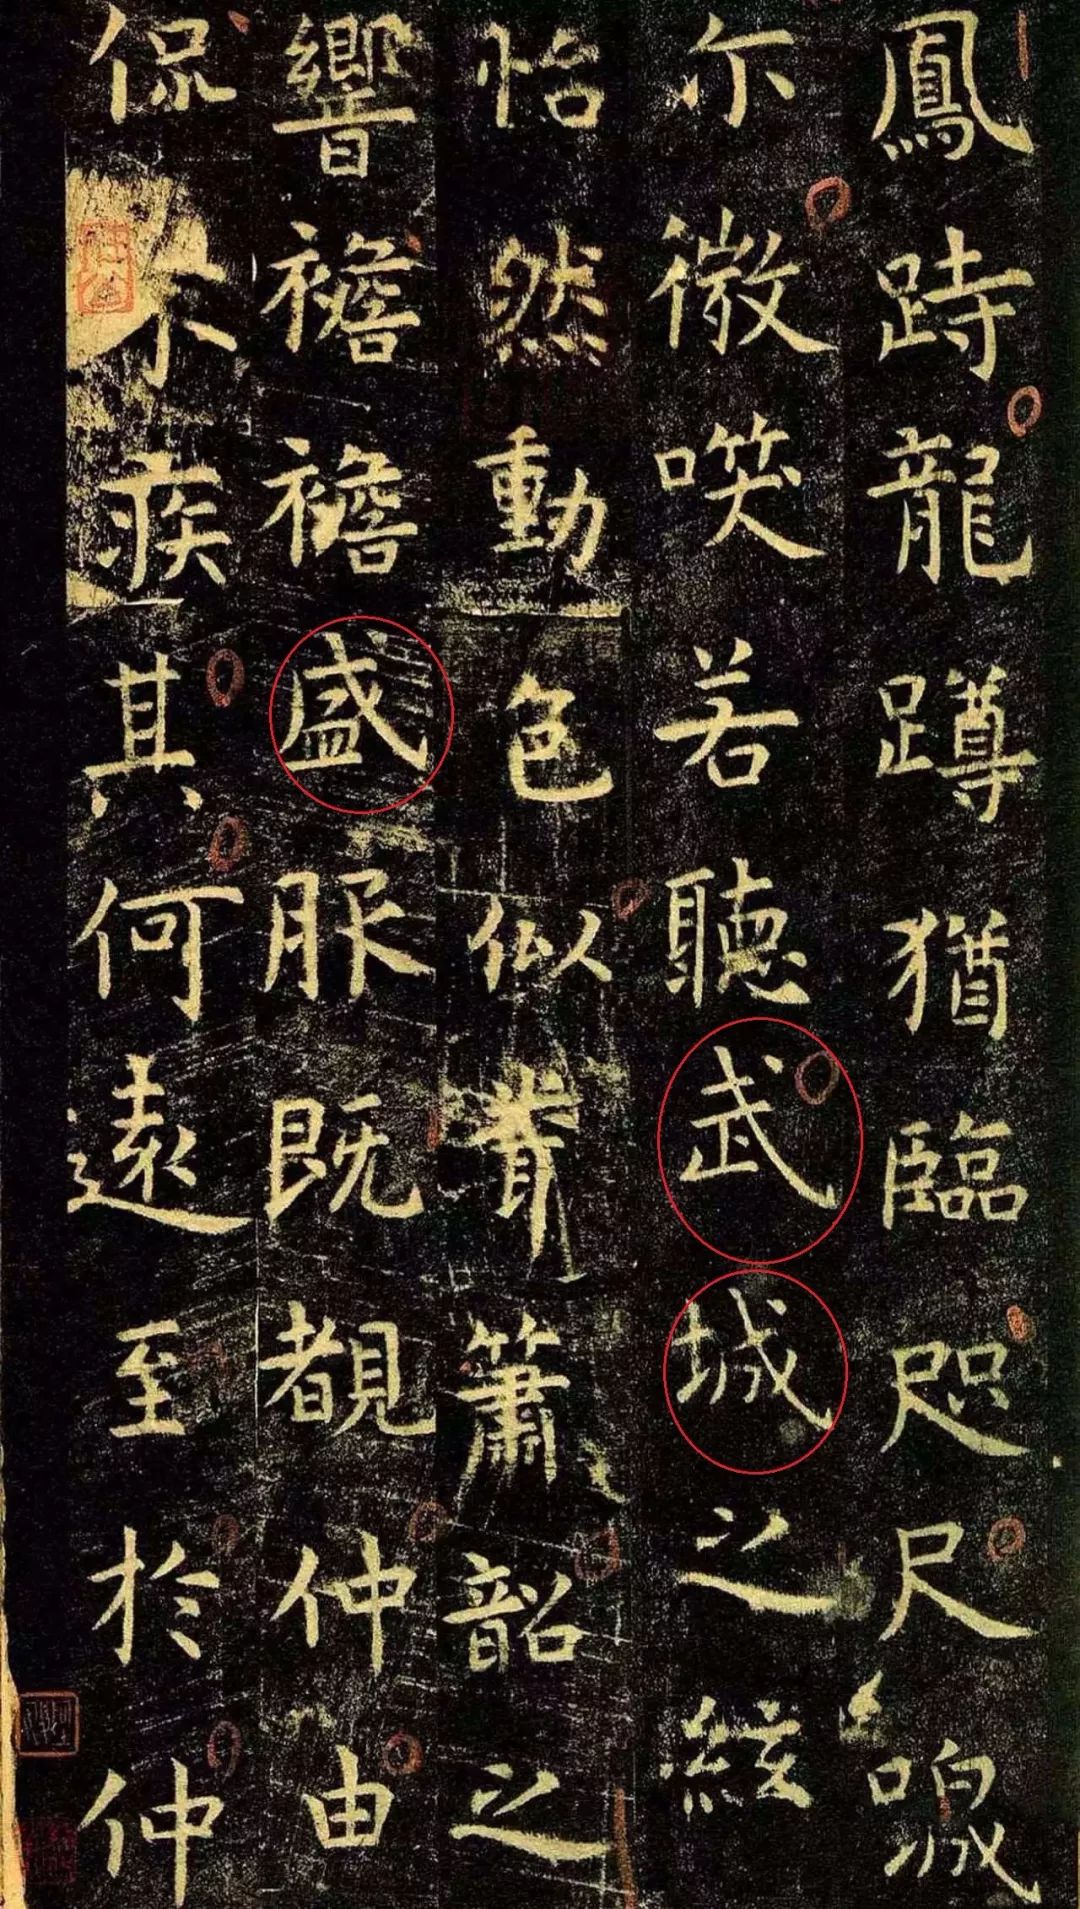 鳳跱龍蹲猶臨咫尺
尒微㗛若聽武城之絃
怡然動色似簫韶之
響襜襜盛服既覩仲由
侃不疾其何遠至於仲